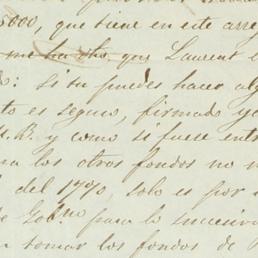 5000, que tiene en este arre
me ha dho, que Laurent
: si tu puedes hacer al
to es seguro, firmado y
H.B. y como si fuese ent
na los otros fondos no
del 17%, solo es por
de Gob.no para lo sucesiv
n tomar los fondos de